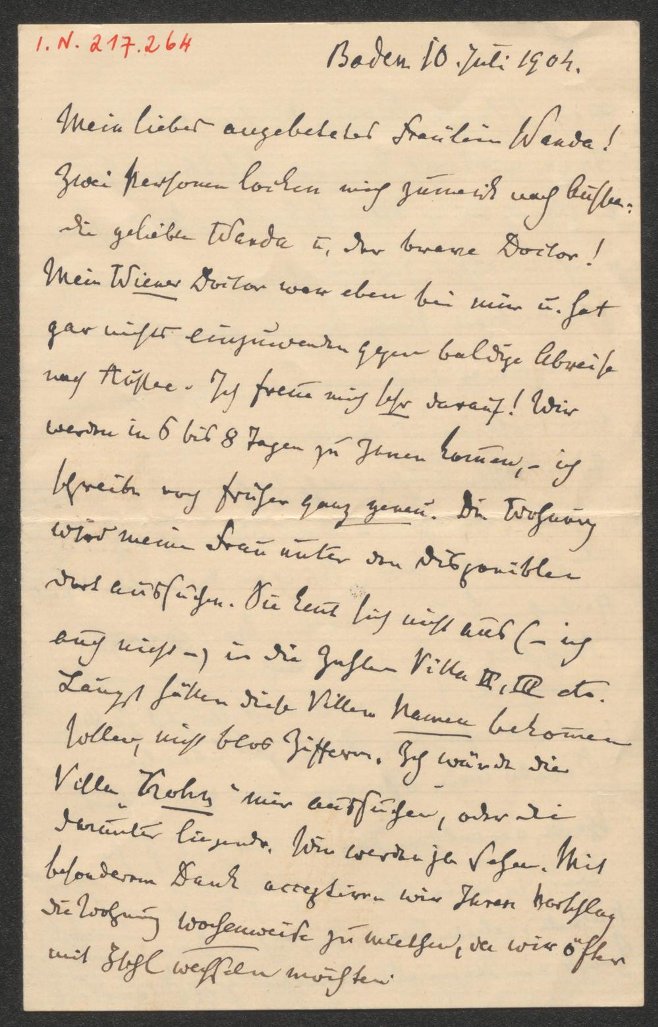 I. N. 217.264
Baden 10. Juli 1904.
Mein liebes angebetetes Fräulein Wanda!
Zwei Personen locken mich zumeist nach Aussee:
die geliebte Wanda u. der brave Doctor!
Mein Wiener Doctor war eben bei mir u. hat
gar nichts einzuwenden gegen baldige Abreise
nach Aussee. Ich freue mich sehr darauf! Wir
werden in 6 bis 8 Tagen zu Ihnen kom̅en, – ich
schreibe noch früher ganz genau. Die Wohnung
wird meine Frau unter den disponiblen
dort aussuchen. Sie kent sich nicht aus (– ich
auch nicht –) in die Zahlen Villa II, III etc.
Längst hätten diese Villen Namen bekom̅en
sollen, nicht blos Ziffern. Ich würde die
Villa "Krohn" mir aussuchen, oder die
darunter liegende. Wir werden ja sehen. Mit
besonderem Dank acceptiren wir Ihren Vorschlag
die Wohnung wochenweise zu miethen, da wir öfter
mit Ischl wechseln möchten